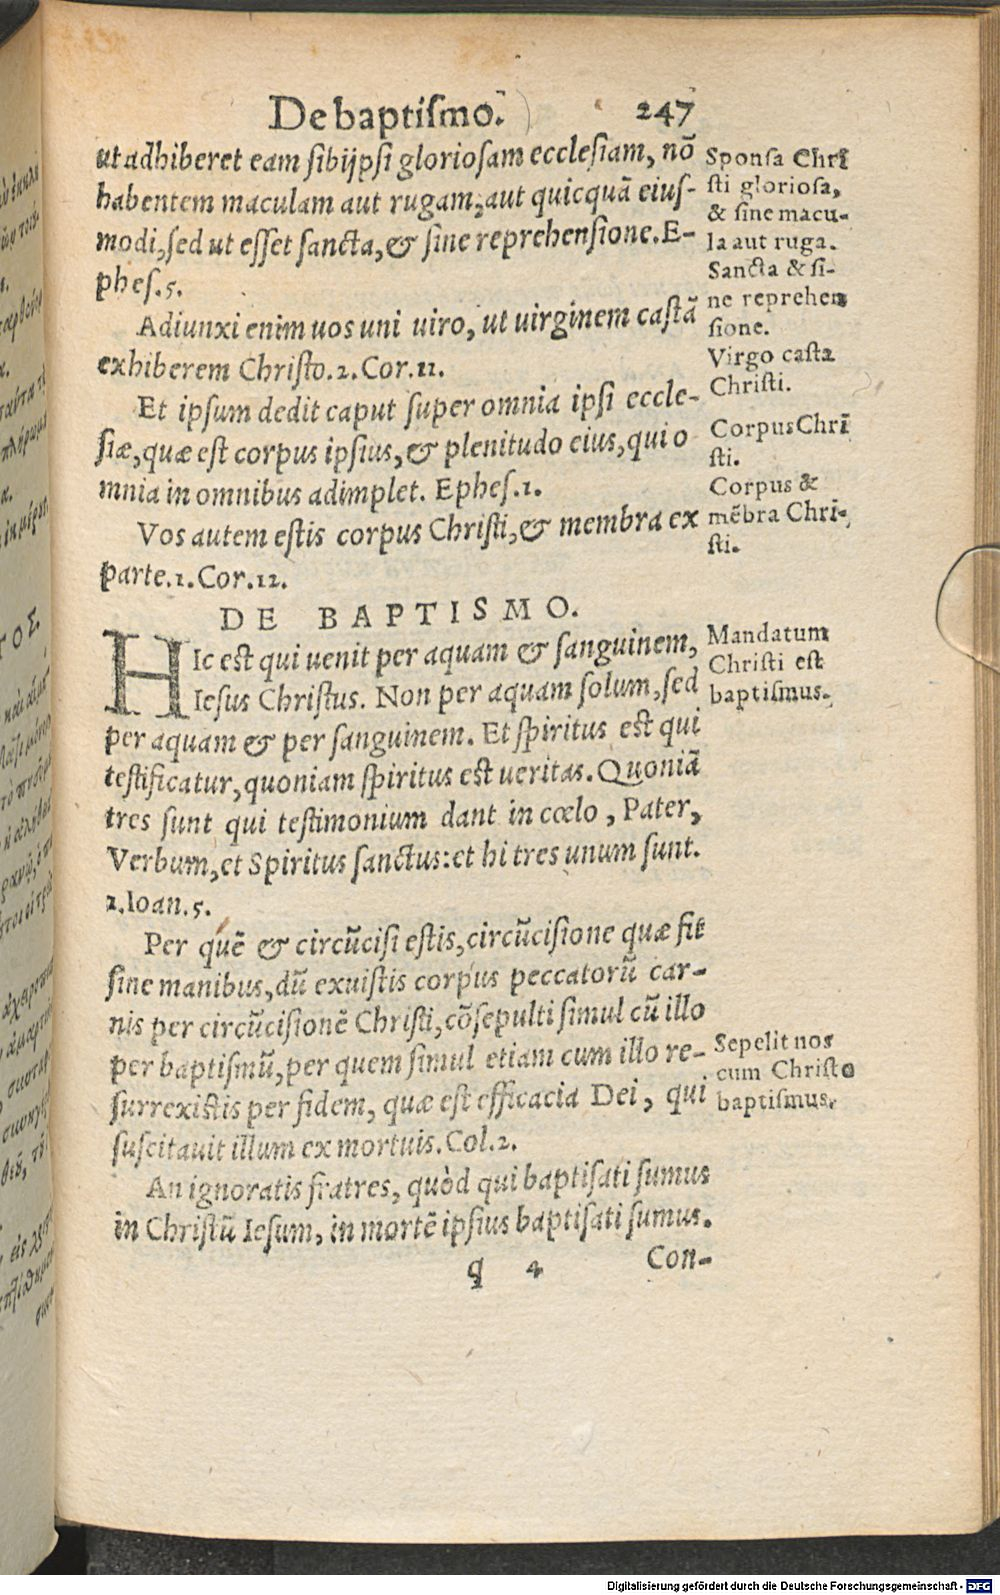 De baptiſmo. 247
ut adhiberet eam ſibijpſi glorioſam eccleſiam, nō
habentem maculam aut rugam, aut quicquā eiuſ-
modi, ſed ut eſſet ſancta, & ſine reprehenſione. E-
pheſ. 5.
Adiunxi enim uos uni uiro, ut uirginem caſtā
exhiberem Chriſto. 2. Cor. 11.
Et ipſum dedit caput ſuper omnia ipſi eccle-
ſiæ, quæ est corpus ipſius, & plenitudo eius, qui o
mnia in omnibus adimplet. Epheſ. 1.
Vos autem eſtis corpus Chriſti, & membra ex
parte. 1. Cor. 12.
Sponſa Chrī
ſti glorioſa,
& ſine macu-
la aut ruga.
Sancta & ſi-
ne reprehen
ſione.
Virgo caſta
Chriſti.
Corpus Chrī
ſti.
Corpus &
mēbra Chri-
ſti.
DE BAPTISMO.
HIc est qui uenit per aquam & ſanguinem,
Ieſus Chriſtus. Non per aquam ſolum, ſed
per aquam & per ſanguinem. Et ſpiritus est qui
teſtificatur, quoniam ſpiritus est ueritas. Quoniā
tres ſunt qui teſtimonium dant in cœlo, Pater,
Verbum, et Spiritus ſanctus: et hi tres unum ſunt.
1. Ioan. 5.
Per quē & circūciſi eſtis, circūciſione quæ fit
ſine manibus, dū exuiſtis corpus peccatorū car-
nis per circūciſionē Chriſti, cōſepulti ſimul cū illo
per baptiſmū, per quem ſimul etiam cum illo re-
ſurrexiſtis per fidem, quæ est efficacia Dei, qui
ſuſcitauit illum ex mortuis. Col. 2.
An ignoratis fratres, quòd qui baptiſati ſumus
in Chriſtū Ieſum, in mortē ipſius baptiſati ſumus.
Mandatum
Chriſti eſt
baptiſmus.
Sepelit nos
cum Chriſto
baptiſmus.
q 4 Con-
Digitalisierung gefördert durch die Deutsche Forschungsgemeinschaft - DFG